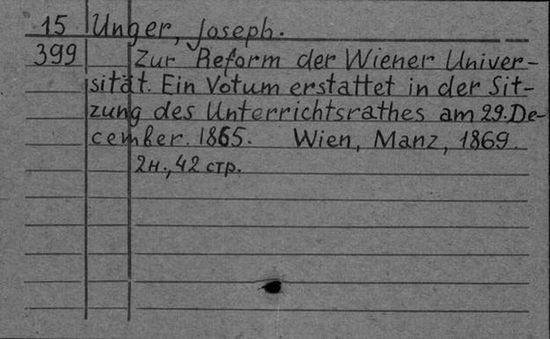 15 Unger, Joseph.
399 Zur Reform der Wiener Univer-
sität. Ein Votum erstattet in der Sit-
zung des Unterrichtsrathes am 29. De-
cember. 1865. Wien, Manz, 1869.
2н., 42 стр.